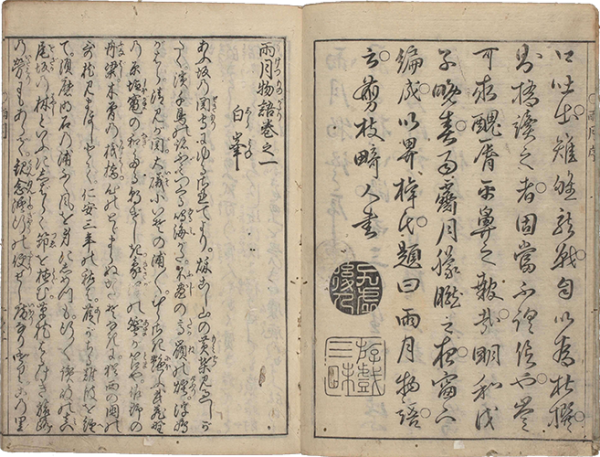 口吐出。雉雊龍戦。自以為杜撰。
則摘読之者。固当不謂信也。豈
可求醜脣平鼻之報哉。明和戊
子晩春。雨霽月朦朧之夜。窓下
編成。以畀梓氏。題曰雨月物語。
云。剪枝畸人書
子虚後人
遊戯三昧
雨月物語巻之一
白峯
あふ坂の関守にゆるされてより。秋こし山の黄葉見過しが
たく。浜千鳥の跡ふみつくる鳴海がた。不尽の高嶺の煙。浮嶋
がはら。清見が関。大磯小いその浦々。むらさき艶ふ武蔵野
の原。塩竈の和たる朝げしき。象潟の蜑が笘や。佐野の
舟梁。木曽の桟橋。心のとゞまらぬかたぞなきに。猶西の国の
歌枕見まほしとて。仁安三年の秋は。葭がちる難波を経
て。須磨明石の浦ふく風を身にしめつも。行々讃岐の真
尾坂の林といふにしばらく笻を植む。草枕はるけき旅路
の労にもあらで。観念修行の便せし庵なりけり。この里